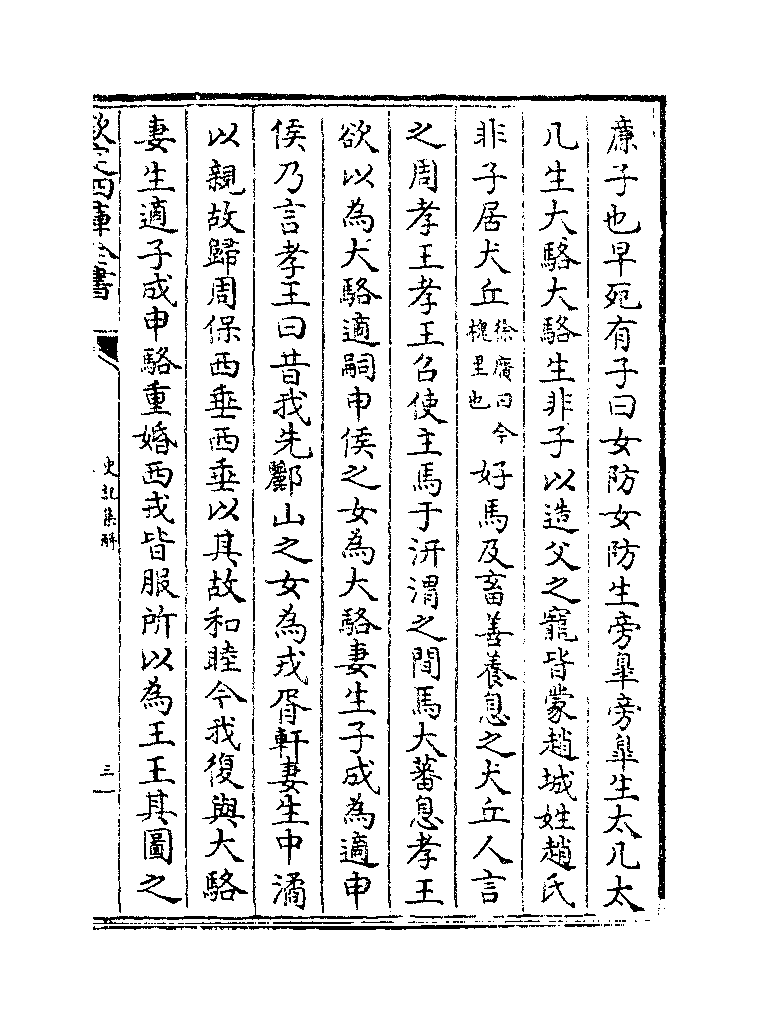 廉子也早死有子曰女防女防生旁臯旁臯生太几太
几生大駱大駱生非子以造父之寵皆蒙趙城姓趙氏
非子居犬丘徐廣曰今槐里也好馬及畜善養息之犬丘人言
之周孝王孝王召使主馬于汧渭之間馬大蕃息孝王
欲以為大駱適嗣申侯之女為大駱妻生子成為適申
侯乃言孝王曰昔我先酈山之女為戎胥軒妻生中潏
以親故歸周保西垂西垂以其故和睦今我復與大駱
妻生適子成申駱重婚西戎皆服所以為王王其圖之
欽定四庫全書
史記集解
三